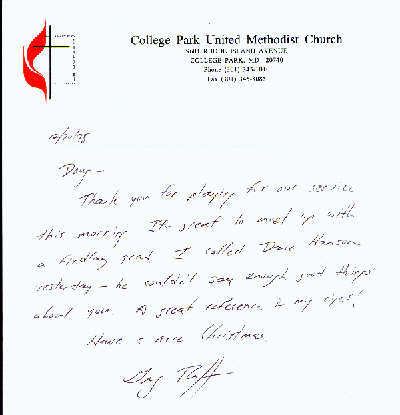 College Park United Methodist Church
AVENUE
COLLEGE PARK, MD 20740
Phone (301)
Fax (301) 345-
Doug -
Thank you for playing for our service
this morning. It's great to meet up with
a Findlay grad. I called Dave Hanson
yesterday - he couldn't say enough good things
about you. A great reference in my eyes!
Have a nice Christmas.